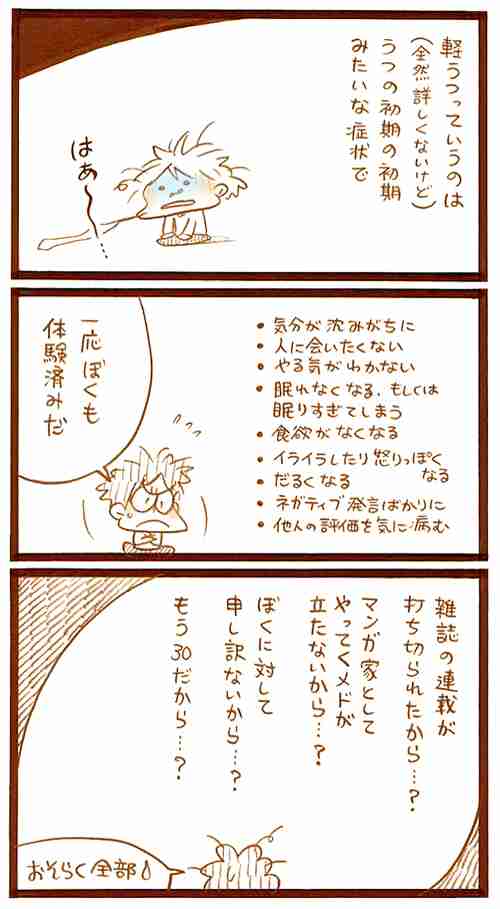 軽うつっていうのは
(全然詳しくないけど)
うつの初期の初期
みたいな症状で
はぁ〜…
・気分が沈みがちに
・人に会いたくない
・やる気がわかない
・眠れなくなる、もしくは
眠りすぎてしまう
・食欲がなくなる
・イライラしたり怒りっぽく
なる
・だるくなる
・ネガティブ発言ばかりに
・他人の評価を気に病む
一応ぼくも
体験済みだ
雑誌の連載が
打ち切られたから…?
マンガ家として
やってくメドが
立たないから…?
ぼくに対して
申し訳ないから…?
もう30だから…?
おそらく全部♪